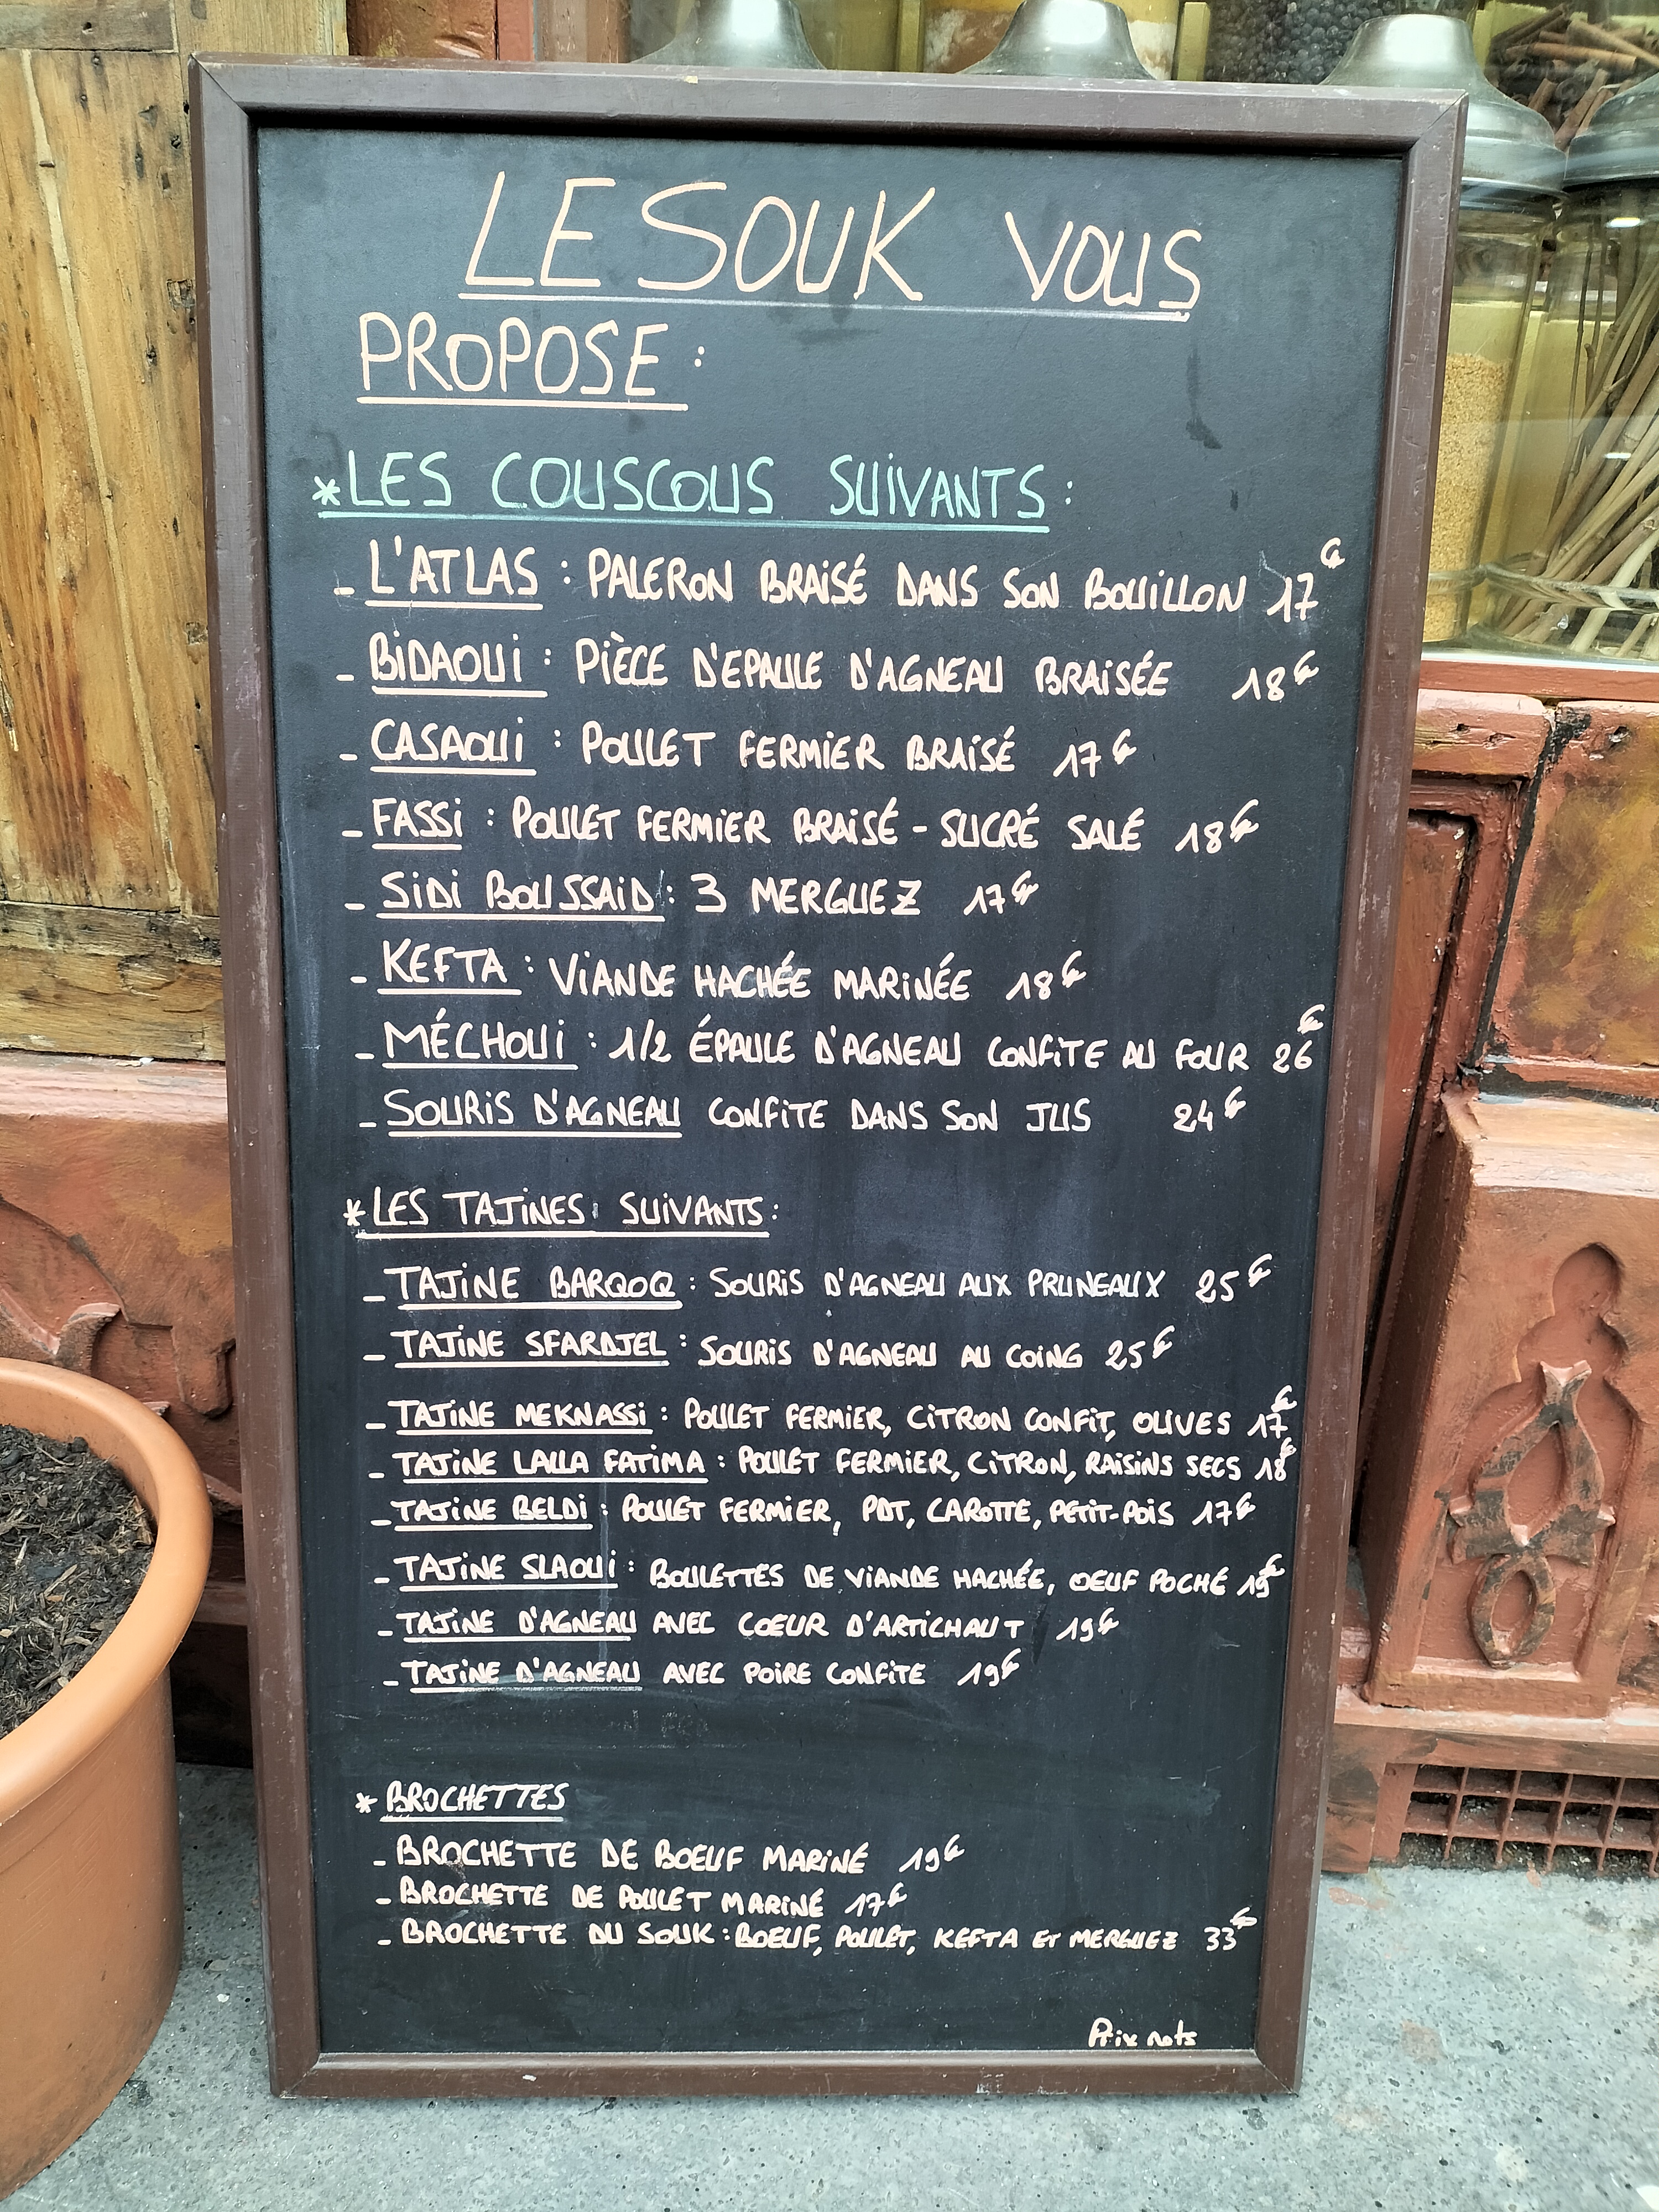 LE SOUK VOUS
PROPOSE :
*LES COUSCOUS SUIVANTS :
- L'ATLAS : PALERON BRAISÉ DANS SON BOUILLON 17€
- BIDAOUI : PIÈCE D'EPAULE D'AGNEAU BRAISÉE 18€
- CASAOUI : POULET FERMIER BRAISÉ 17€
- FASSI : POULET FERMIER BRAISÉ - SUCRÉ SALÉ 18€
- SIDI BOUSSAID : 3 MERGUEZ 17€
- KEFTA : VIANDE HACHÉE MARINÉE 18€
- MÉCHOUI : 1/2 ÉPAULE D'AGNEAU CONFITE AU FOUR 26€
- SOURIS D'AGNEAU CONFITE DANS SON JUS 24€
*LES TAJINES SUIVANTS :
- TAJINE BARQOQ : SOURIS D'AGNEAU AUX PRUNEAUX 25€
- TAJINE SFARDJEL : SOURIS D'AGNEAU AU COING 25€
- TAJINE MEKNASSI : POULET FERMIER, CITRON CONFIT, OLIVES 17€
- TAJINE LALLA FATIMA : POULET FERMIER, CITRON, RAISINS SECS 18€
- TAJINE BELDI : POULET FERMIER, PDT, CAROTTE, PETIT-POIS 17€
- TAJINE SLAOUI : BOULETTES DE VIANDE HACHÉE, OEUF POCHÉ 19€
- TAJINE D'AGNEAU AVEC COEUR D'ARTICHAUT 19€
- TAJINE D'AGNEAU AVEC POIRE CONFITE 19€
* BROCHETTES
- BROCHETTE DE BOEUF MARINÉ 19€
- BROCHETTE DE POULET MARINÉ 17€
- BROCHETTE DU SOUK : BOEUF, POULET, KEFTA ET MERGUEZ 33€
Prix nets